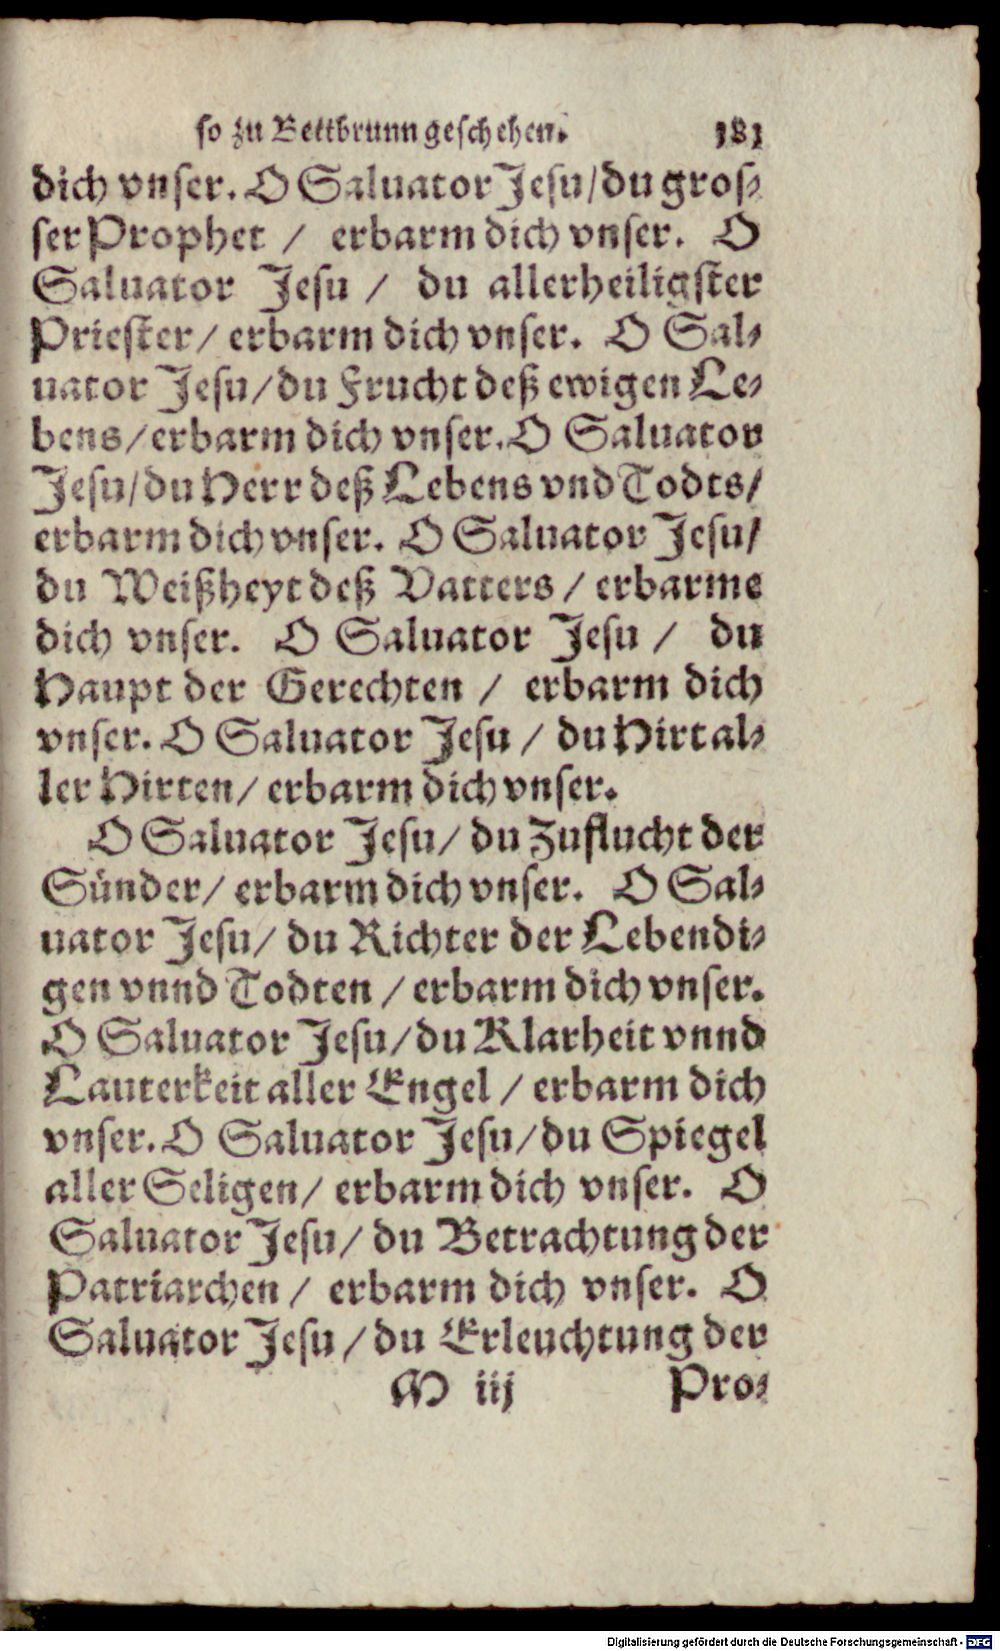 so zu Bettbrunn geschehen. 181
dich vnser. O Saluator Jesu/du gros-
ser Prophet / erbarm dich vnser. O
Saluator Jesu / du allerheiligster
Priester/ erbarm dich vnser. O Sal-
uator Jesu/du Frucht deß ewigen Le-
bens/erbarm dich vnser. O Saluator
Jesu/du Herr deß Lebens vnd Todts/
erbarm dich vnser. O Saluator Jesu/
du Weißheyt deß Vatters / erbarme
dich vnser. O Saluator Jesu / du
Haupt der Gerechten / erbarm dich
vnser. O Saluator Jesu / du Hirt al-
ler Hirten/ erbarm dich vnser.
O Saluator Jesu/ du Zuflucht der
Sünder/ erbarm dich vnser. O Sal-
uator Jesu/ du Richter der Lebendi-
gen vnnd Todten / erbarm dich vnser.
O Saluator Jesu/du Klarheit vnnd
Lauterkeit aller Engel / erbarm dich
vnser. O Saluator Jesu/du Spiegel
aller Seligen/ erbarm dich vnser. O
Saluator Jesu/ du Betrachtung der
Patriarchen / erbarm dich vnser. O
Saluator Jesu / du Erleuchtung der
M iij Pro-
Digitalisierung gefördert durch die Deutsche Forschungsgemeinschaft - DFG